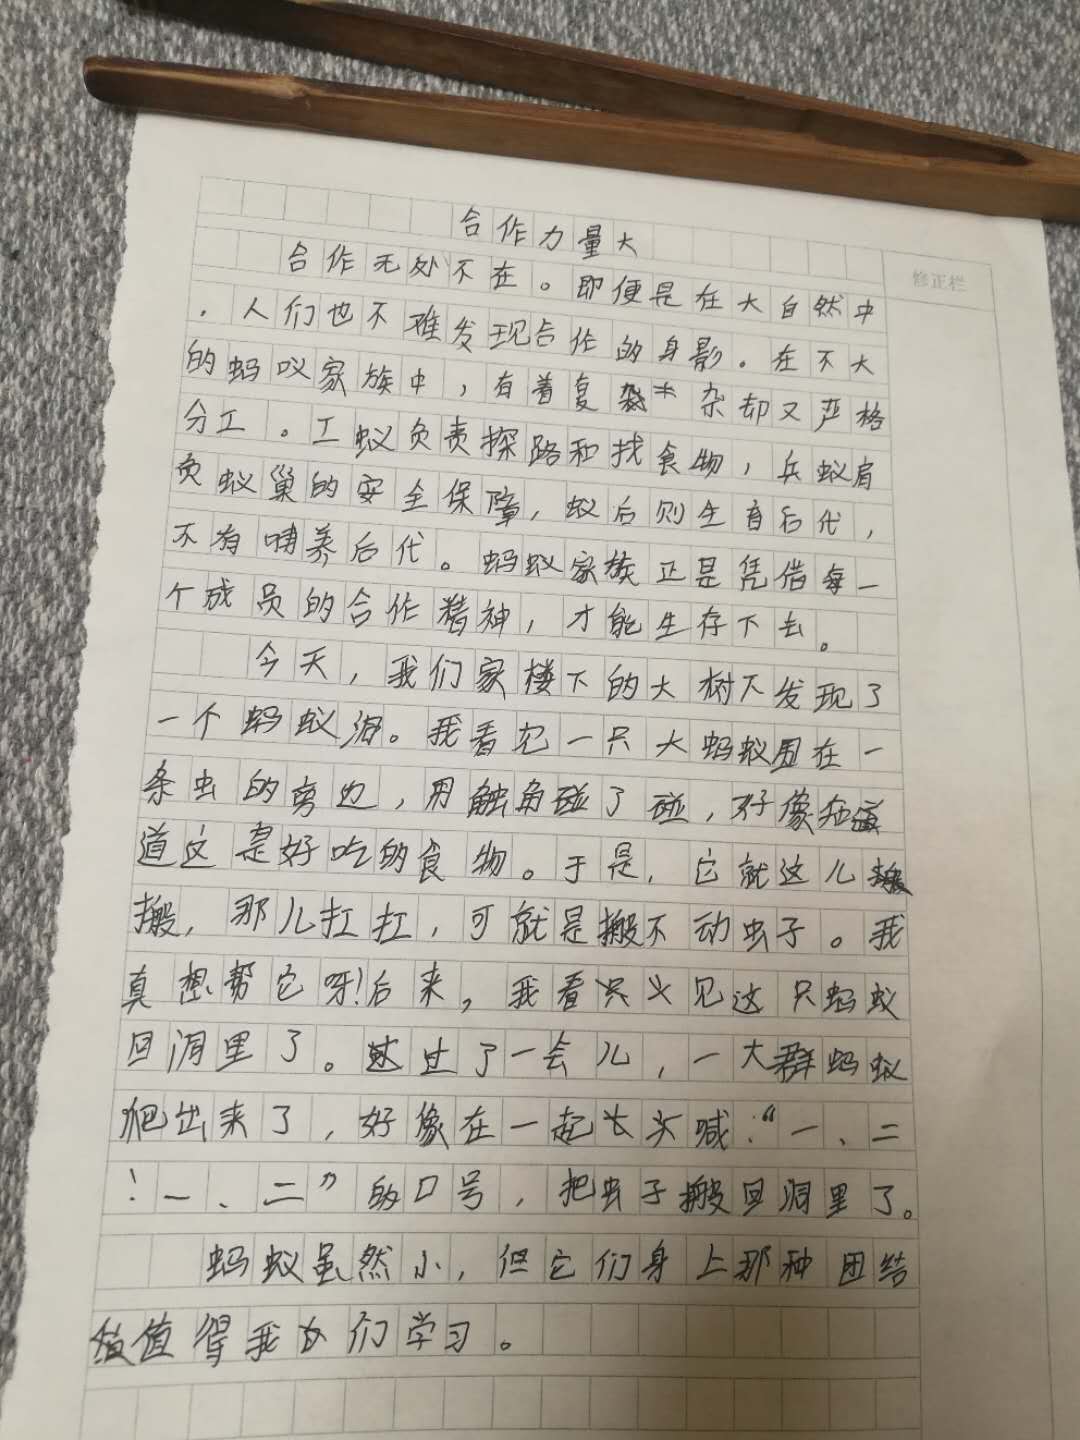 合作力量大
修正栏
合作无处不在。即便是在大自然中
，人们也不难发现合作的身影。在不大
的蚂蚁家族中，有着复杂却又严格
分工。工蚁负责探路和找食物，兵蚁肩
负蚁巢的安全保障，蚁后则生育后代，
不有哺养后代。蚂蚁家族正是凭借每一
个成员的合作精神，才能生存下去。
今天，我们家楼下的大树下发现了
一个蚂蚁洞。我看见一只大蚂蚁围在一
条虫的旁边，用触角碰了碰，好像知道
道这是好吃的食物。于是，它就这儿搬
搬，那儿扛扛，可就是搬不动虫子。我
真想帮它呀！后来，我看见这只蚂蚁
回洞里了。过了一会儿，一大群蚂蚁
爬出来了，好像在一起大头喊：“一、二
！一、二”的口号，把虫子搬回洞里了。
蚂蚁虽然小，但它们身上那种团结
值得我们学习。